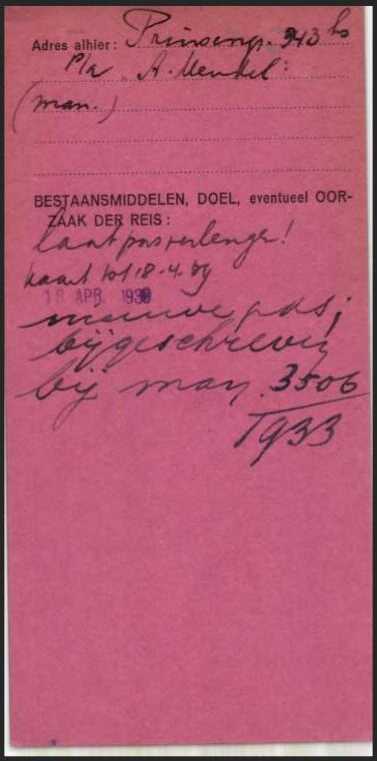 Adres alhier: Prinsengr. 943 hs
p/a A. Mendel:
(man.)
BESTAANSMIDDELEN, DOEL, eventueel OOR-
ZAAK DER REIS:
laat pas verlengen!
kaart tot 18-4-39
18 APR. 1939
nieuwe pas;
bijgeschreven
bij man. 3506
1933